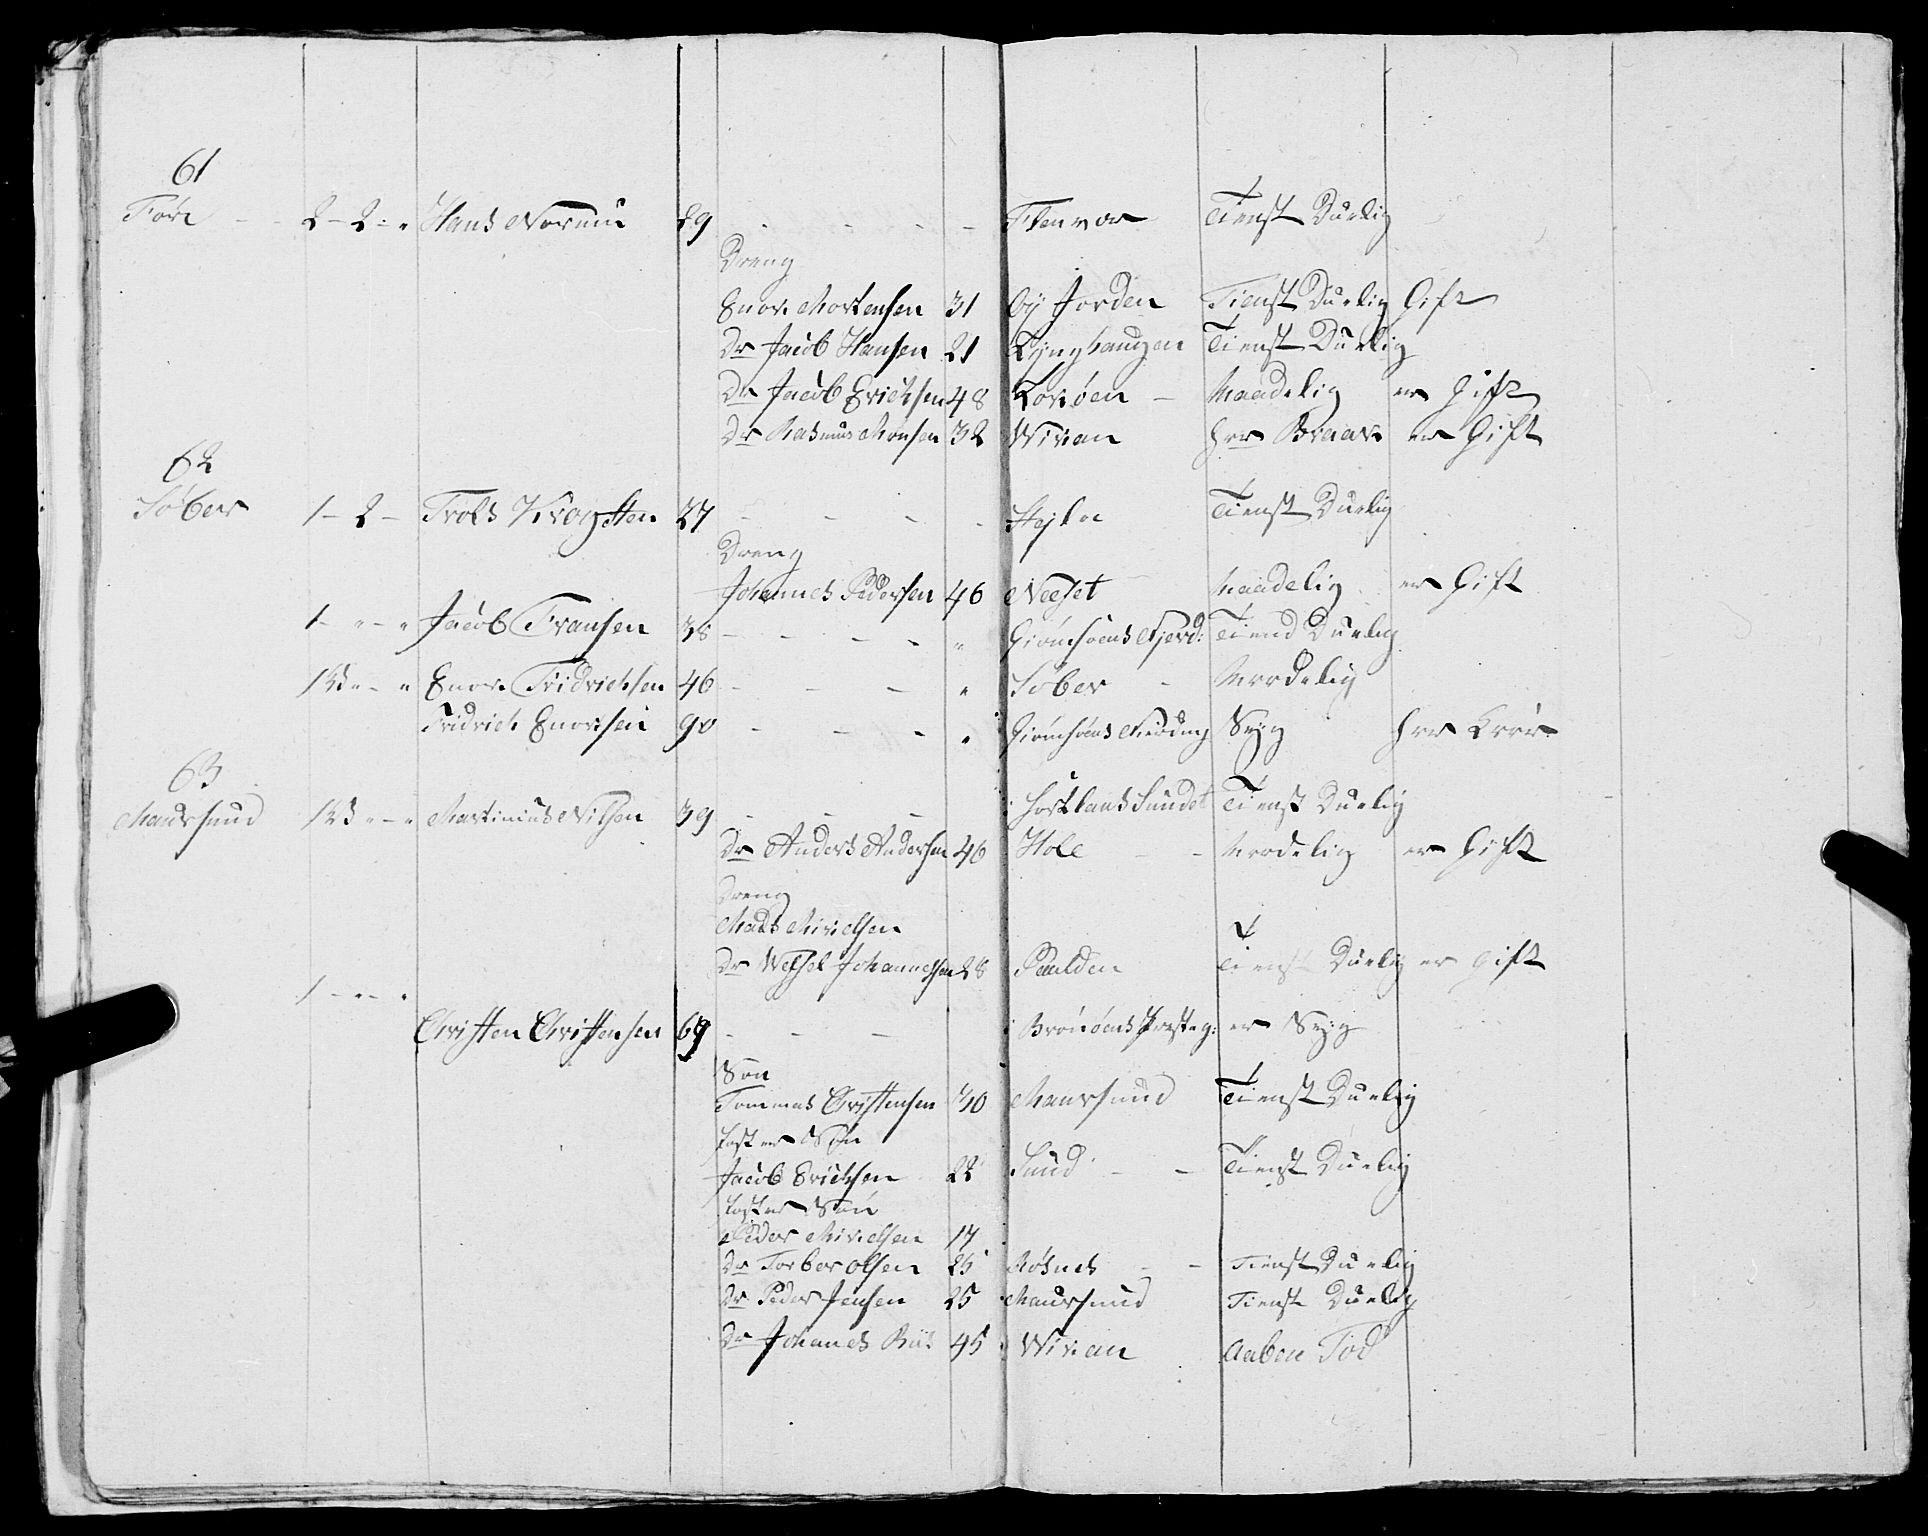 61
Före - - 2 - 2 : " Hans Normin 29 - - - - Flenvor Tienst Duelig
Dreng
Enor. Mortensen 31 Øÿ Jorden Tienst Duelig Gift
Dr Jacob Hansen 21 Lÿnghaugen Tienst Duelig
Dr Jacob Erichsen 48 Korsøen - Maadelig er Gift
Dr Rasmus Monsen 32 Wivian har Braav. er Gift
62
Søber 1 - 2 - Trols Krogsten 27 - - - - Hejlør Tienst Duelig
Dreng
Johannes Pedersen 46 Neeset Maadelig er Gift
1 - " - " Jacob Fransen 38 - - - - " Giømsøens Fjerd: Tiend Duelig
" - " Enor. Fridrichsen 46 - - - " Søber - Maadelig
Fridrich Enorsen 90 - - - " Giømsøens Fierding Svg har Krør
63
Maursund " - " Martinius Nilsen 39 - - - Hortlands Sundet Tienst Duelig
Dr Anders Andersen 46 Hole - - Maadelig er Gift
Dreng
Mads Mivelsen
Dr Wessel Johannessen 28 Paulden Tienst Duelig er Gift
1 - " - "
Christen Christensen 69 - - - Brønøens Presteg: er Svg
Søn
Tommas Christensen 30 Maursund Tienst Duelig
foster Søn
Jacob Erichsen 22 Sund - - Tienst Duelig
foster Søn
Peder Mivelsen 17
Dr Torber Olsen 25 Røsnes - - Tienst Duelig
Dr Peder Jensen 25 Maursund Tienst Duelig
Dr Johanes 45 Wivian Aaben Fod